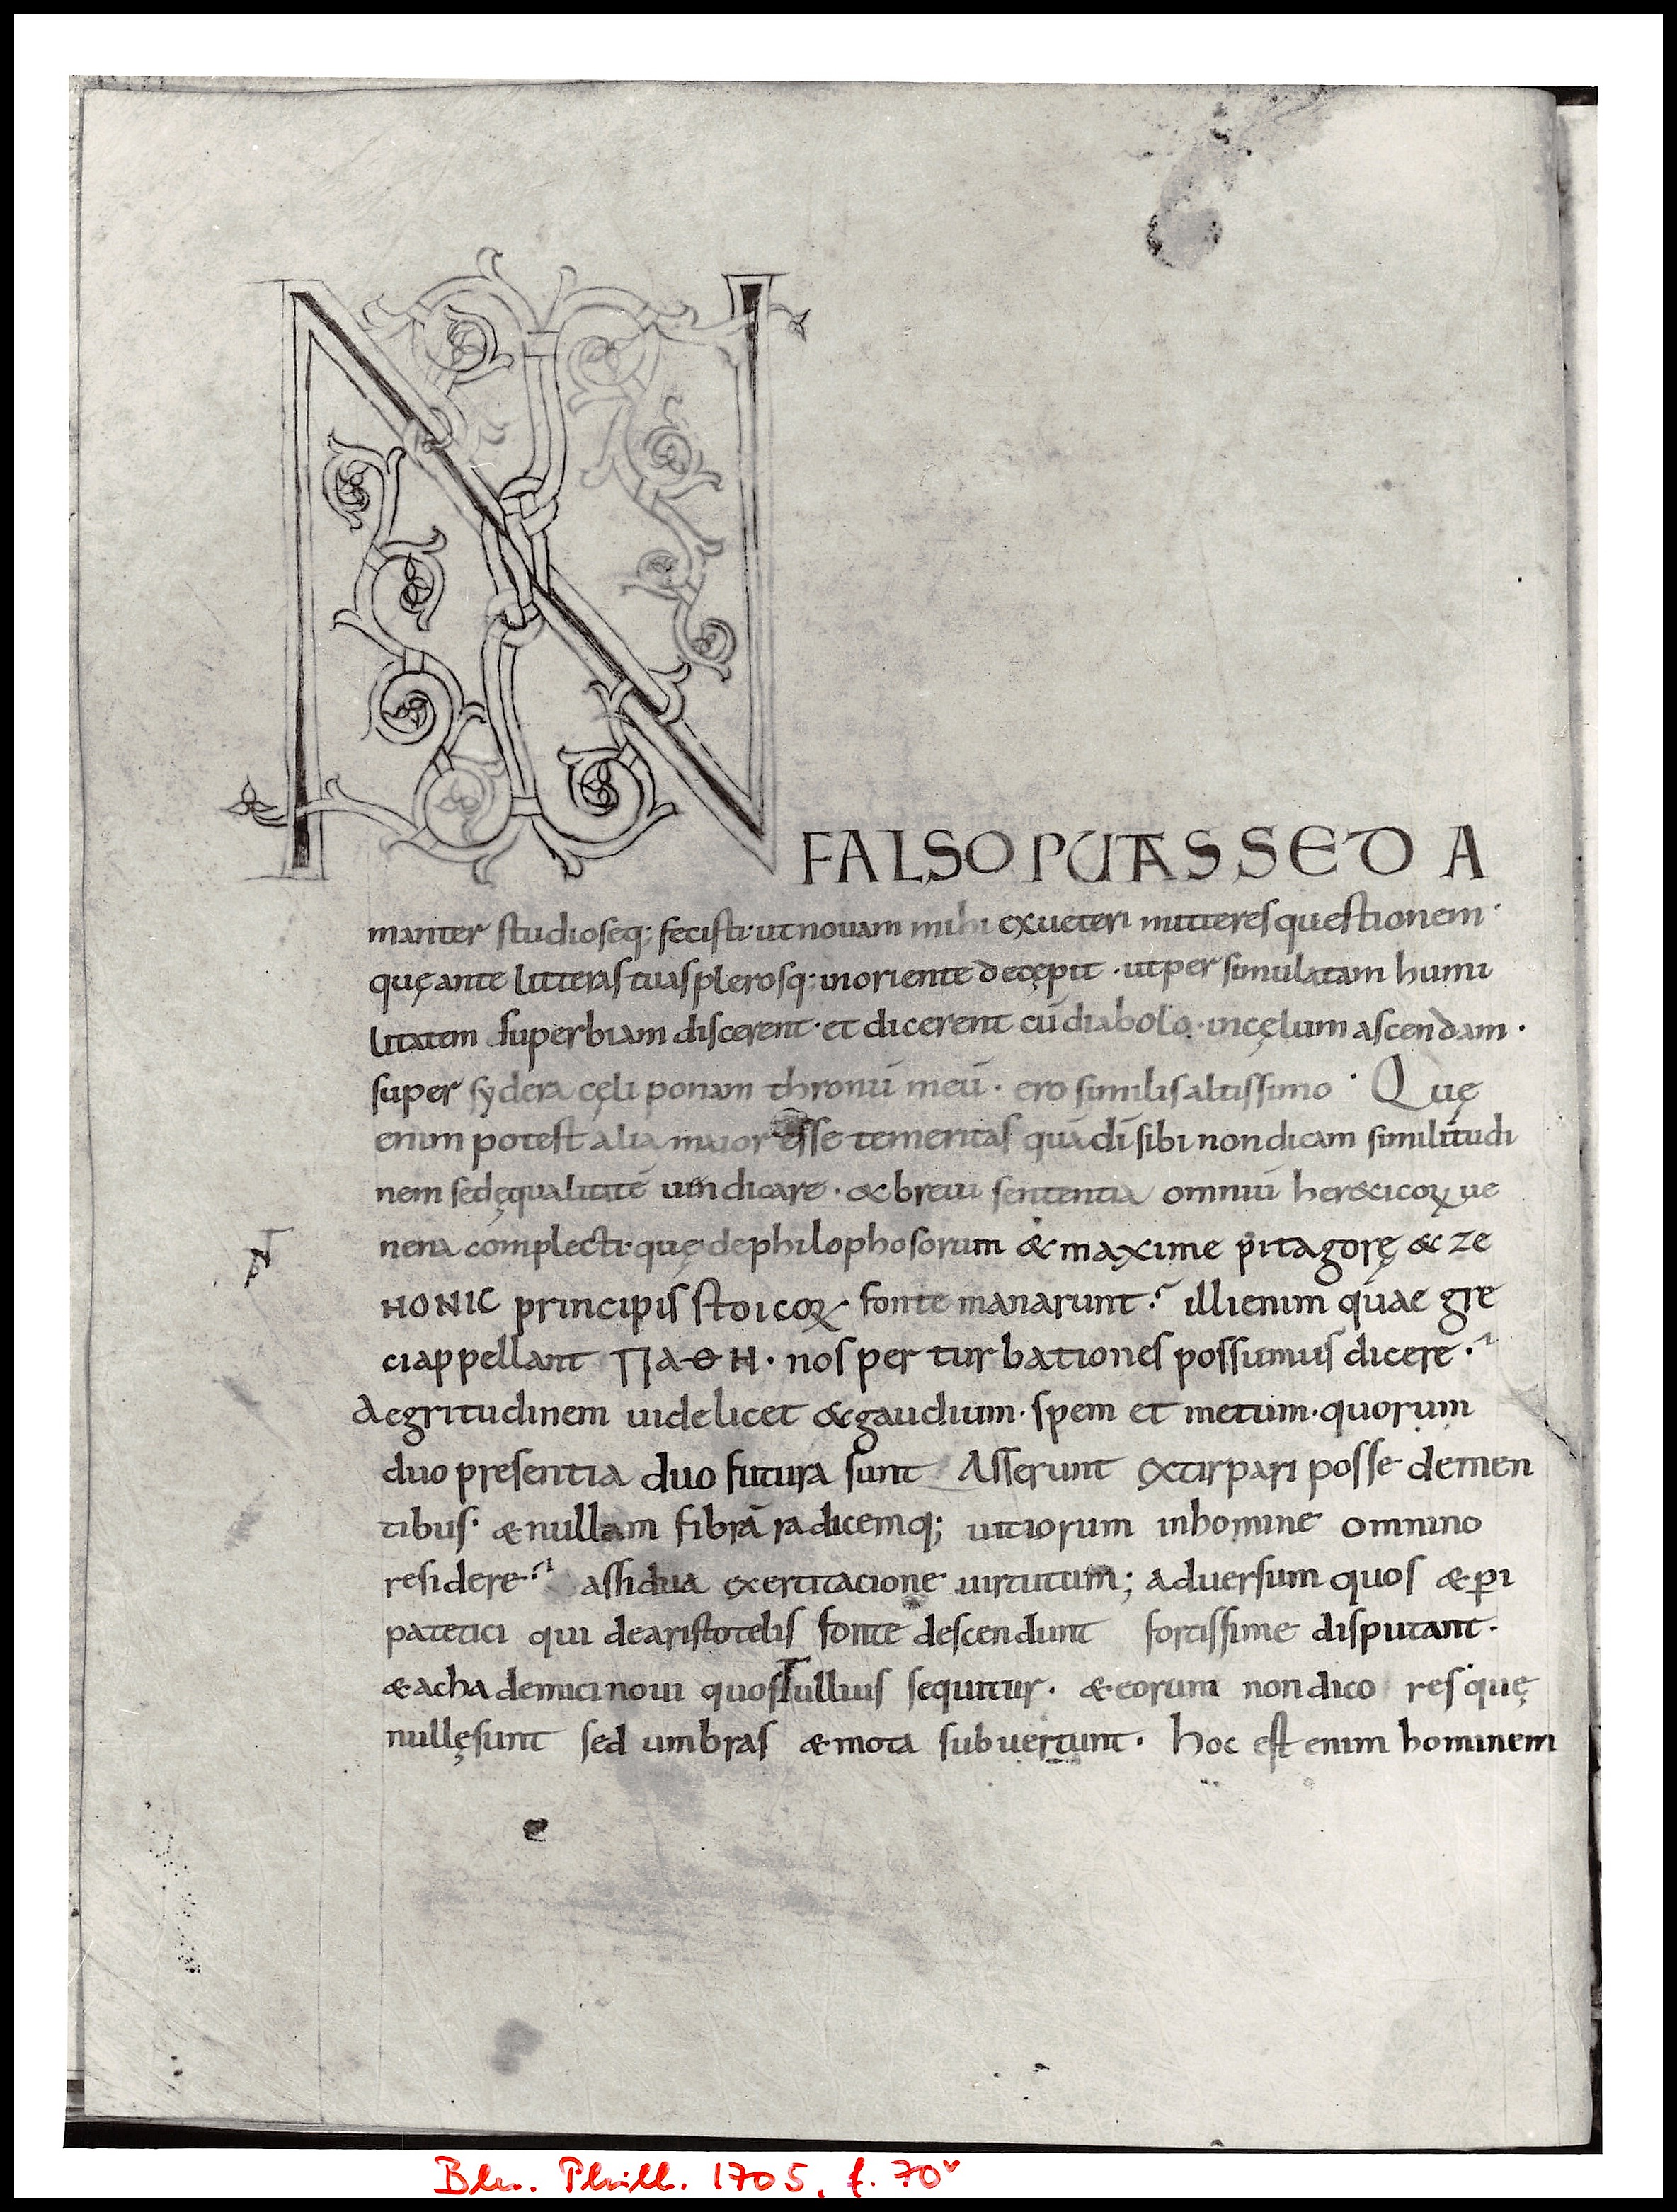 N
FALSO PUTAS SED A
manter studioseq; fecisti· ut nouam mihi ex ueteri mitteres questionem·
quę ante litteras tuas plerosq: in oriente decępit · ut per simulatam humi
litatem superbiam discerent· et dicerent cū diabolo· in cęlum ascendam·
super sydera cęli ponam thronū meū · ero similis altissimo · Quę
enim potest alia maior esse temeritas quā dī sibi non dicam similitudi
nem sed ęqualitatē uindicare · & breui sententia omniū her&icoꝝ ue
nena complecti· quę de philophosorum & maxime pitagorę & ze
NONIC principis stoicoꝝ fonte manarunt· illi enim quae gre
ci appellant ΠΑΘΗ · nos perturbationes possumus dicere·
Aegritudinem uidelicet & gaudium· spem et metum· quorum
duo presentia duo futura sunt Asserunt ęxtirpari posse de men
tibus· & nullam fibrā radicemq; uitiorum in homine omnino
residere· assidua ęxertitacione uirtutum; aduersum quos & ꝑi
patetici qui de aristotelis fonte descendunt fortissime disputant·
& achademici noui quos Tullius sequitur· & eorum non dico res quę
nullę sunt sed umbras & mota subuertunt· hoc est enim hominem
Bln. Phill. 1705, f. 70v